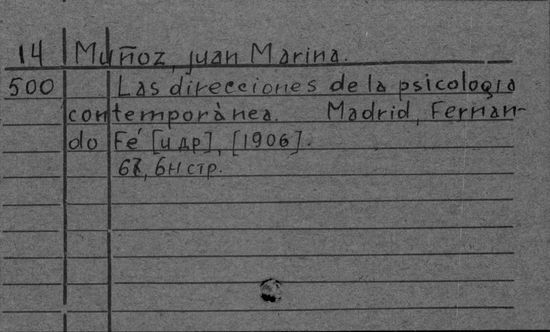 14 Muñoz, juan Marina.
500 Las direcciones de la psicologia
contemporànea. Madrid, Fernan-
do Fé [и др], [1906].
6 , 6н стр.